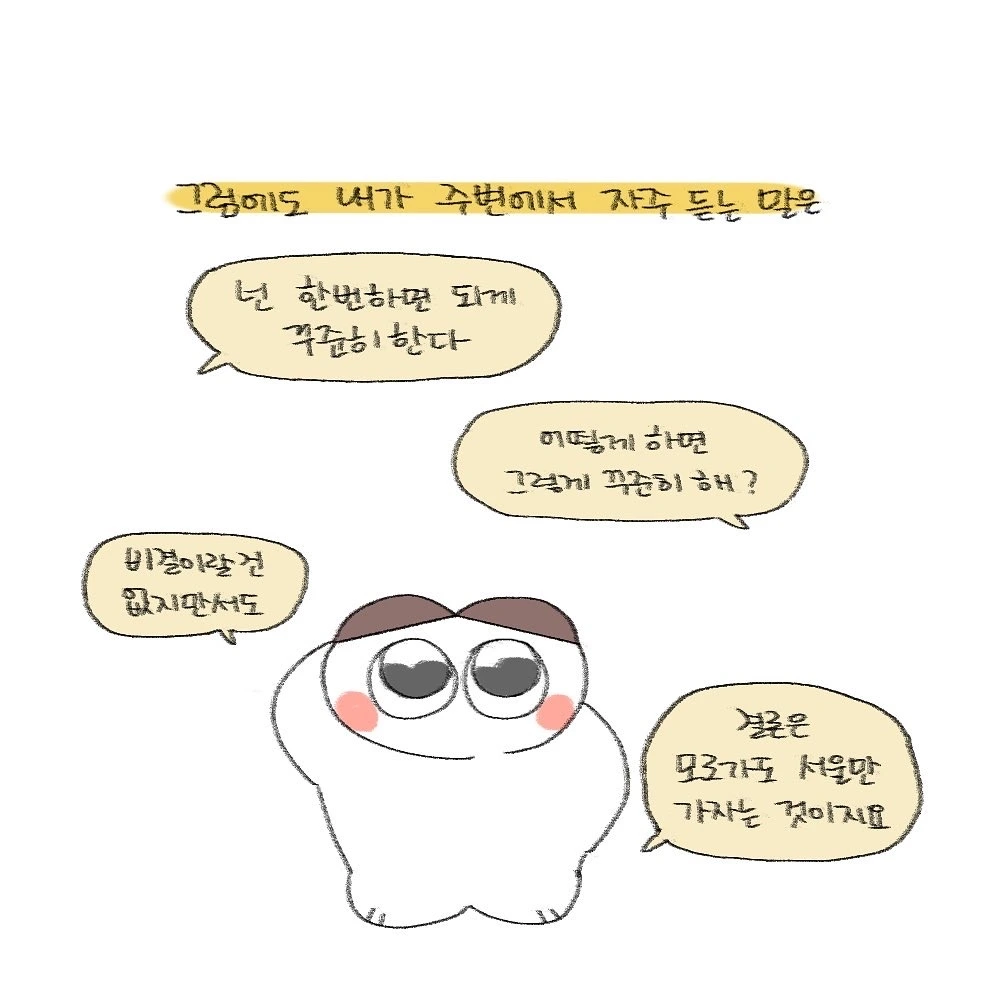 그럼에도 내가 주변에서 자주 듣는 말은
넌 한번하면 되게
꾸준히 한다
어떻게 하면
그렇게 꾸준히 해?
비결이랄건
없지만서도
결론은
모로가도 서울만
가자는 것이지요